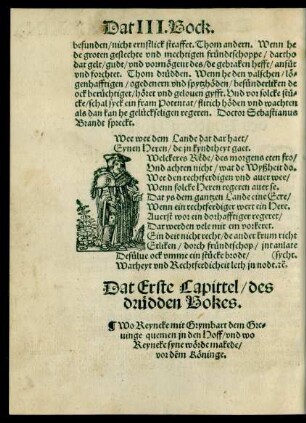 Dat III. Bock.
befunden / nicht ernstlick straffet. Thom andern. Wenn he
de groten geslechte vnd mechtigen fründschoppe / dartho
dat gelt / gudt / vnd vormögent des / de gebraken hefft / ansüt
vnd forchtet. Thom drüdden. Wenn he den valschen / lög-
genhafftigen / ogedenern vnd spytzhöden / besünderliken de
ock berüchtiget / höret vnd gelouen gyfft. Vnd vor solcke stü-
cke / schal syck ein fram Potentat / flitich höden vnd wachten
als dan kan he gelückseligen regeren. Doctor Sebastianus
Brandt spreckt.
Wee wee dem Lande dat dar haet /
Eynen Heren / de in kyndtheyt gaet.
Welckeres Rede / des morgens eten fro /
Vnd achten nicht / wat de Wyßheit do.
Wee den rechtferdigen vnd auer wee /
Wenn solcke Heren regeren auer se.
Dat ys dem gantzen Lande eine Eere /
Wenn ein rechtferdiger wert ein Here.
Auerst wor ein dorhafftiger regeret /
Dat werden vele mit em vorkeret.
Ein deit nicht recht / de ander krum richt
Etliken / dorch fründschop / int anlat
Desülue ock vmme ein stücke brodt /
Warheyt vnd Rechtferdicheit leth in nodt.
Dat Erste Capittel / des
drüdden Bokes.
¶ Wo Reyneke mit Grymbart dem Gre-
uinge quemen in den Hoff / vnd wo
Reyneke syne wörde makede /
vor dem Köninge.